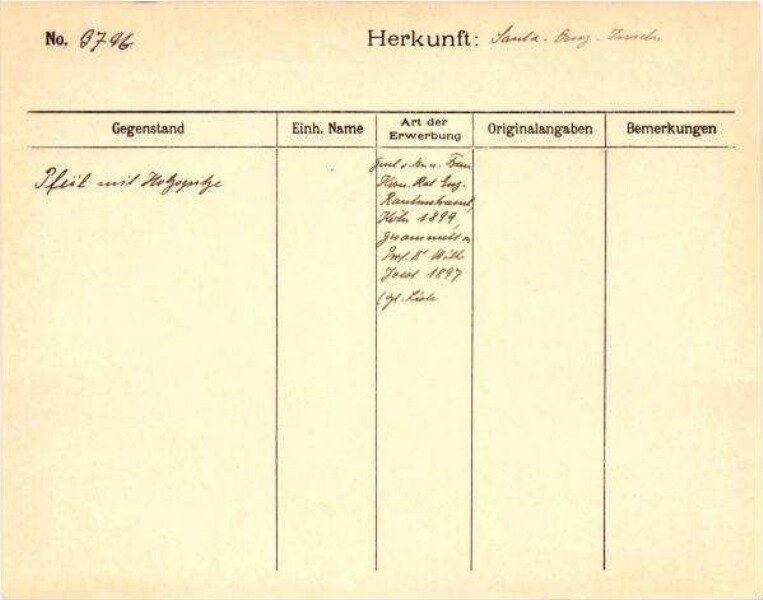 No. 3796
Herkunft: Santa-Cruz-Inseln
Gegenstand
Einh. Name
Art der
Erwerbung
Originalangaben
Bemerkungen
Pfeil mit Holzspitze
Gesch. v. Frau
Rat Eug.
Rautenstrauch,
Köln 1899
gesammelt v.
Prof. Dr Wilh.
Joest 1897
(vgl. Liste